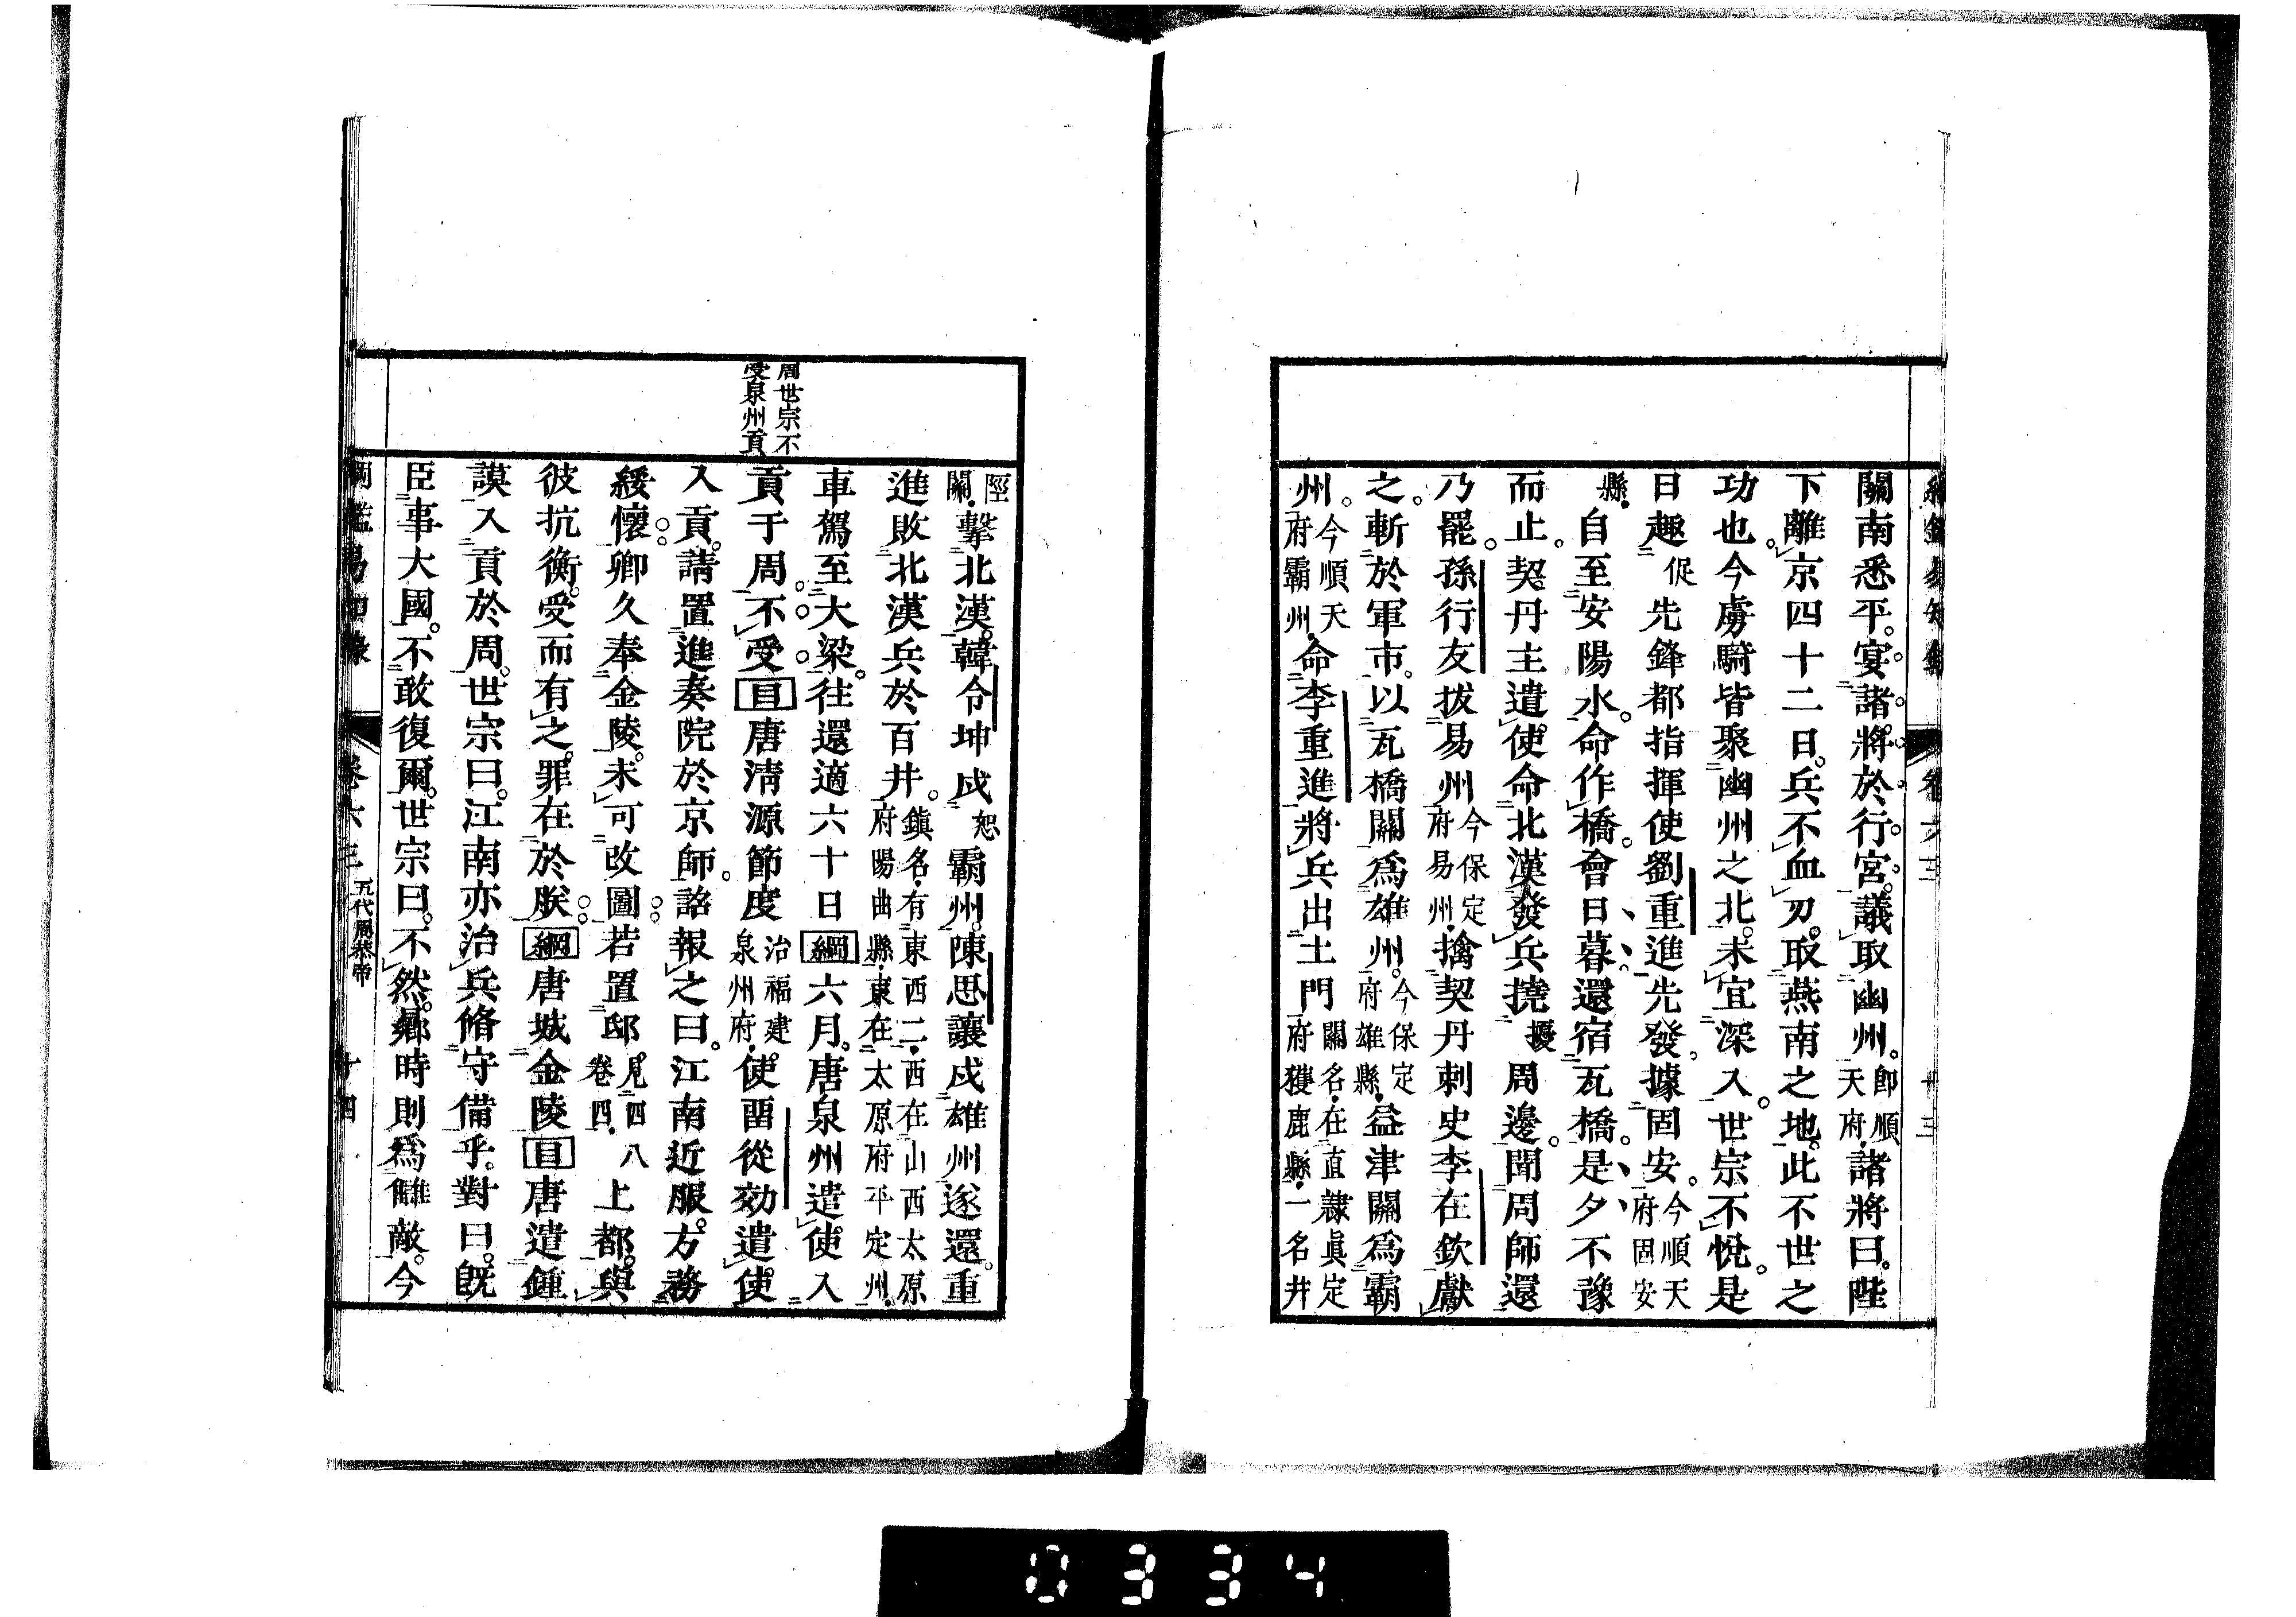 關南悉平。宴諸將於行宮。議取幽州。卽順天府。諸將曰。陛
下離京四十二日。兵不血刃。取燕南之地。此不世之
功也。今虜騎皆聚幽州之北。未宜深入。世宗不悅。是
日趣促先鋒都指揮使劉重進先發。據固安。今順天府固安
縣。自至安陽水。命作橋。會日暮。還宿瓦橋。是夕不豫
而止。契丹主遣使命北漢發兵撓擾周邊。聞周師還
乃罷。孫行友拔易州今保定府易州。擒契丹刺史李在欽獻
之。斬於軍市。以瓦橋關爲雄州。今保定府雄縣。益津關爲霸
州。今順天府霸州。命李重進將兵出土門關名。在直隸眞定府獲鹿縣。一名井
陘關。擊北漢。韓令坤戍恕霸州。陳思讓戍雄州遂還。重
進敗北漢兵於百井。鎭名。有東西二。西在山西太原府陽曲縣。東在太原府平定州。
車駕至大梁。往還適六十日綱六月。唐泉州遣使入
周世宗不受泉州貢
貢于周。不受目唐淸源節度治福建泉州府。使畱從効遣使
入貢。請置進奏院於京師。詔報之曰。江南近服。方務
綏懷。卿久奉金陵。未可改圖。若置邸。見四八卷四。上都。與
彼抗衡。受而有之。罪在於朕。綱唐城金陵目唐遣鍾
謨入貢於周。世宗曰。江南亦治兵脩守備乎。對曰。旣
臣事大國。不敢復爾。世宗曰。不然。鄕時則爲讎敵。今
卷六三 五代周恭帝 十四
0334